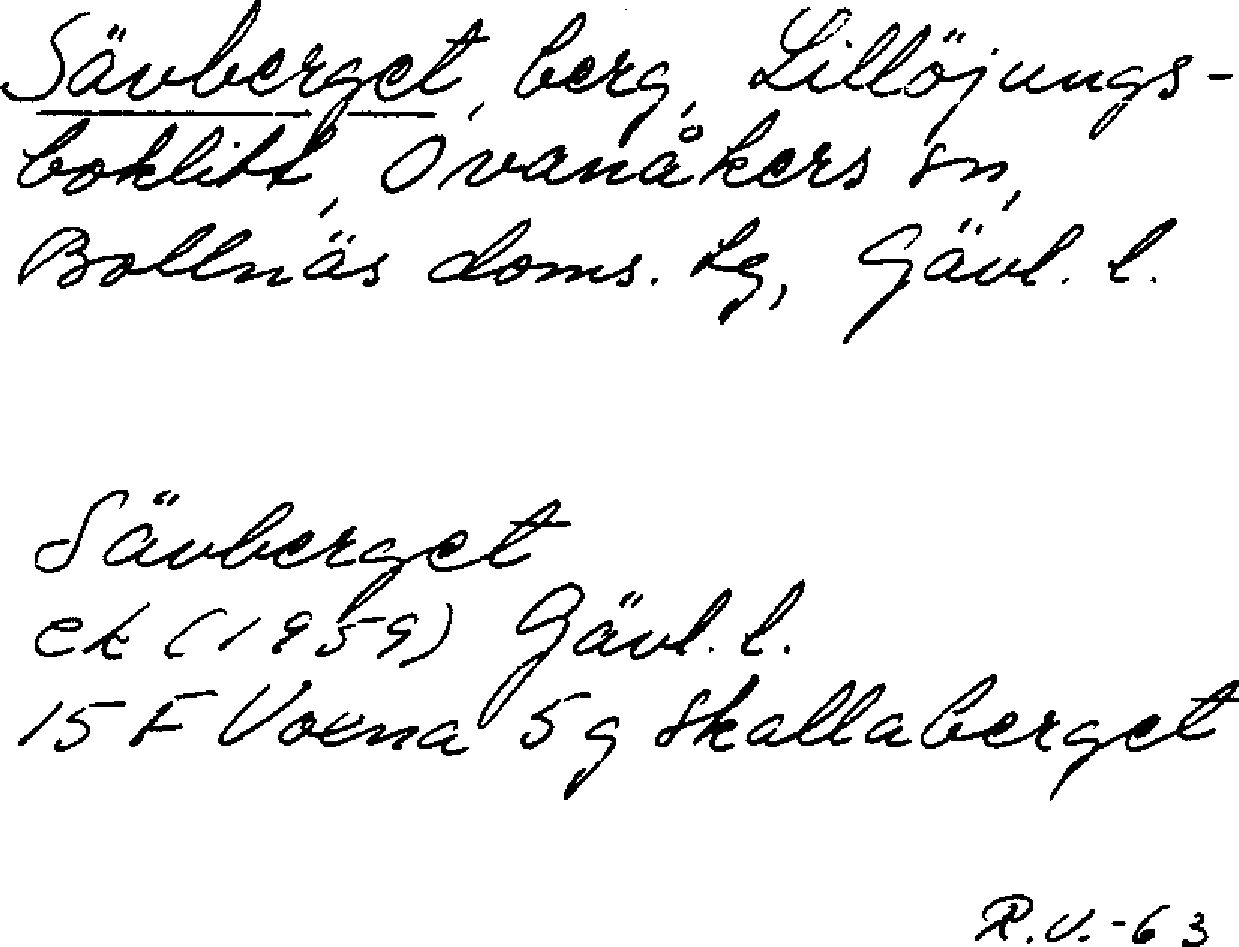 Sävberget, berg, Lillöjungs-
boklitt, Ovanåkers sn,
Bollnäs doms. tg, Gävl. l.
Sävberget
ek (1959) Gävl. l.
15 F Voxna 5 g Skallaberget
R.V.-63